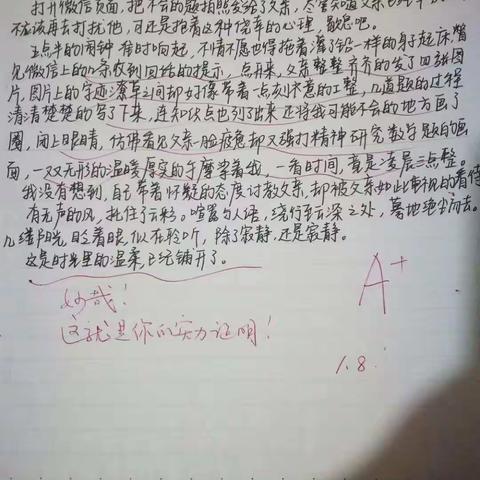 打开微信页面,把不会的题拍照发给了父亲,尽管知道父亲已经
不应该再去打扰他,可还是抱着这种侥幸的心理,歇息吧。
五点半的闹钟准时响起,不情不愿也得拖着灌了铅一样的身子起床,瞥
见微信上的条收到回话的提示,点开来,父亲整整齐齐的发了四张图
片,图片上的字迹潦草之间却好像带着一点刻不意的工整,几道题的过程
清清楚楚的写了下来,连知识点也列了出来还将我可能不会的地方画了
圈,闭上眼睛,仿佛看见父亲一脸疲惫却又强打精神研究数学题的画
面,一双无形的温暖厚实的手摩挲着我,一看时间,竟是凌晨三点整。
我没有想到,自己带着怀疑的态度讨教父亲,却被父亲如此审视的看待
有无声的风,托住了云彩。喧嚣的人语,绕行至云深之处,蓦地绝尘而去。
几缕阳光,眨着眼,似在聆听,除了寂静,还是寂静。
这是时光里的温柔,已经铺开了。
妙哉!
这就是你的实力证明!
A+
1.8.